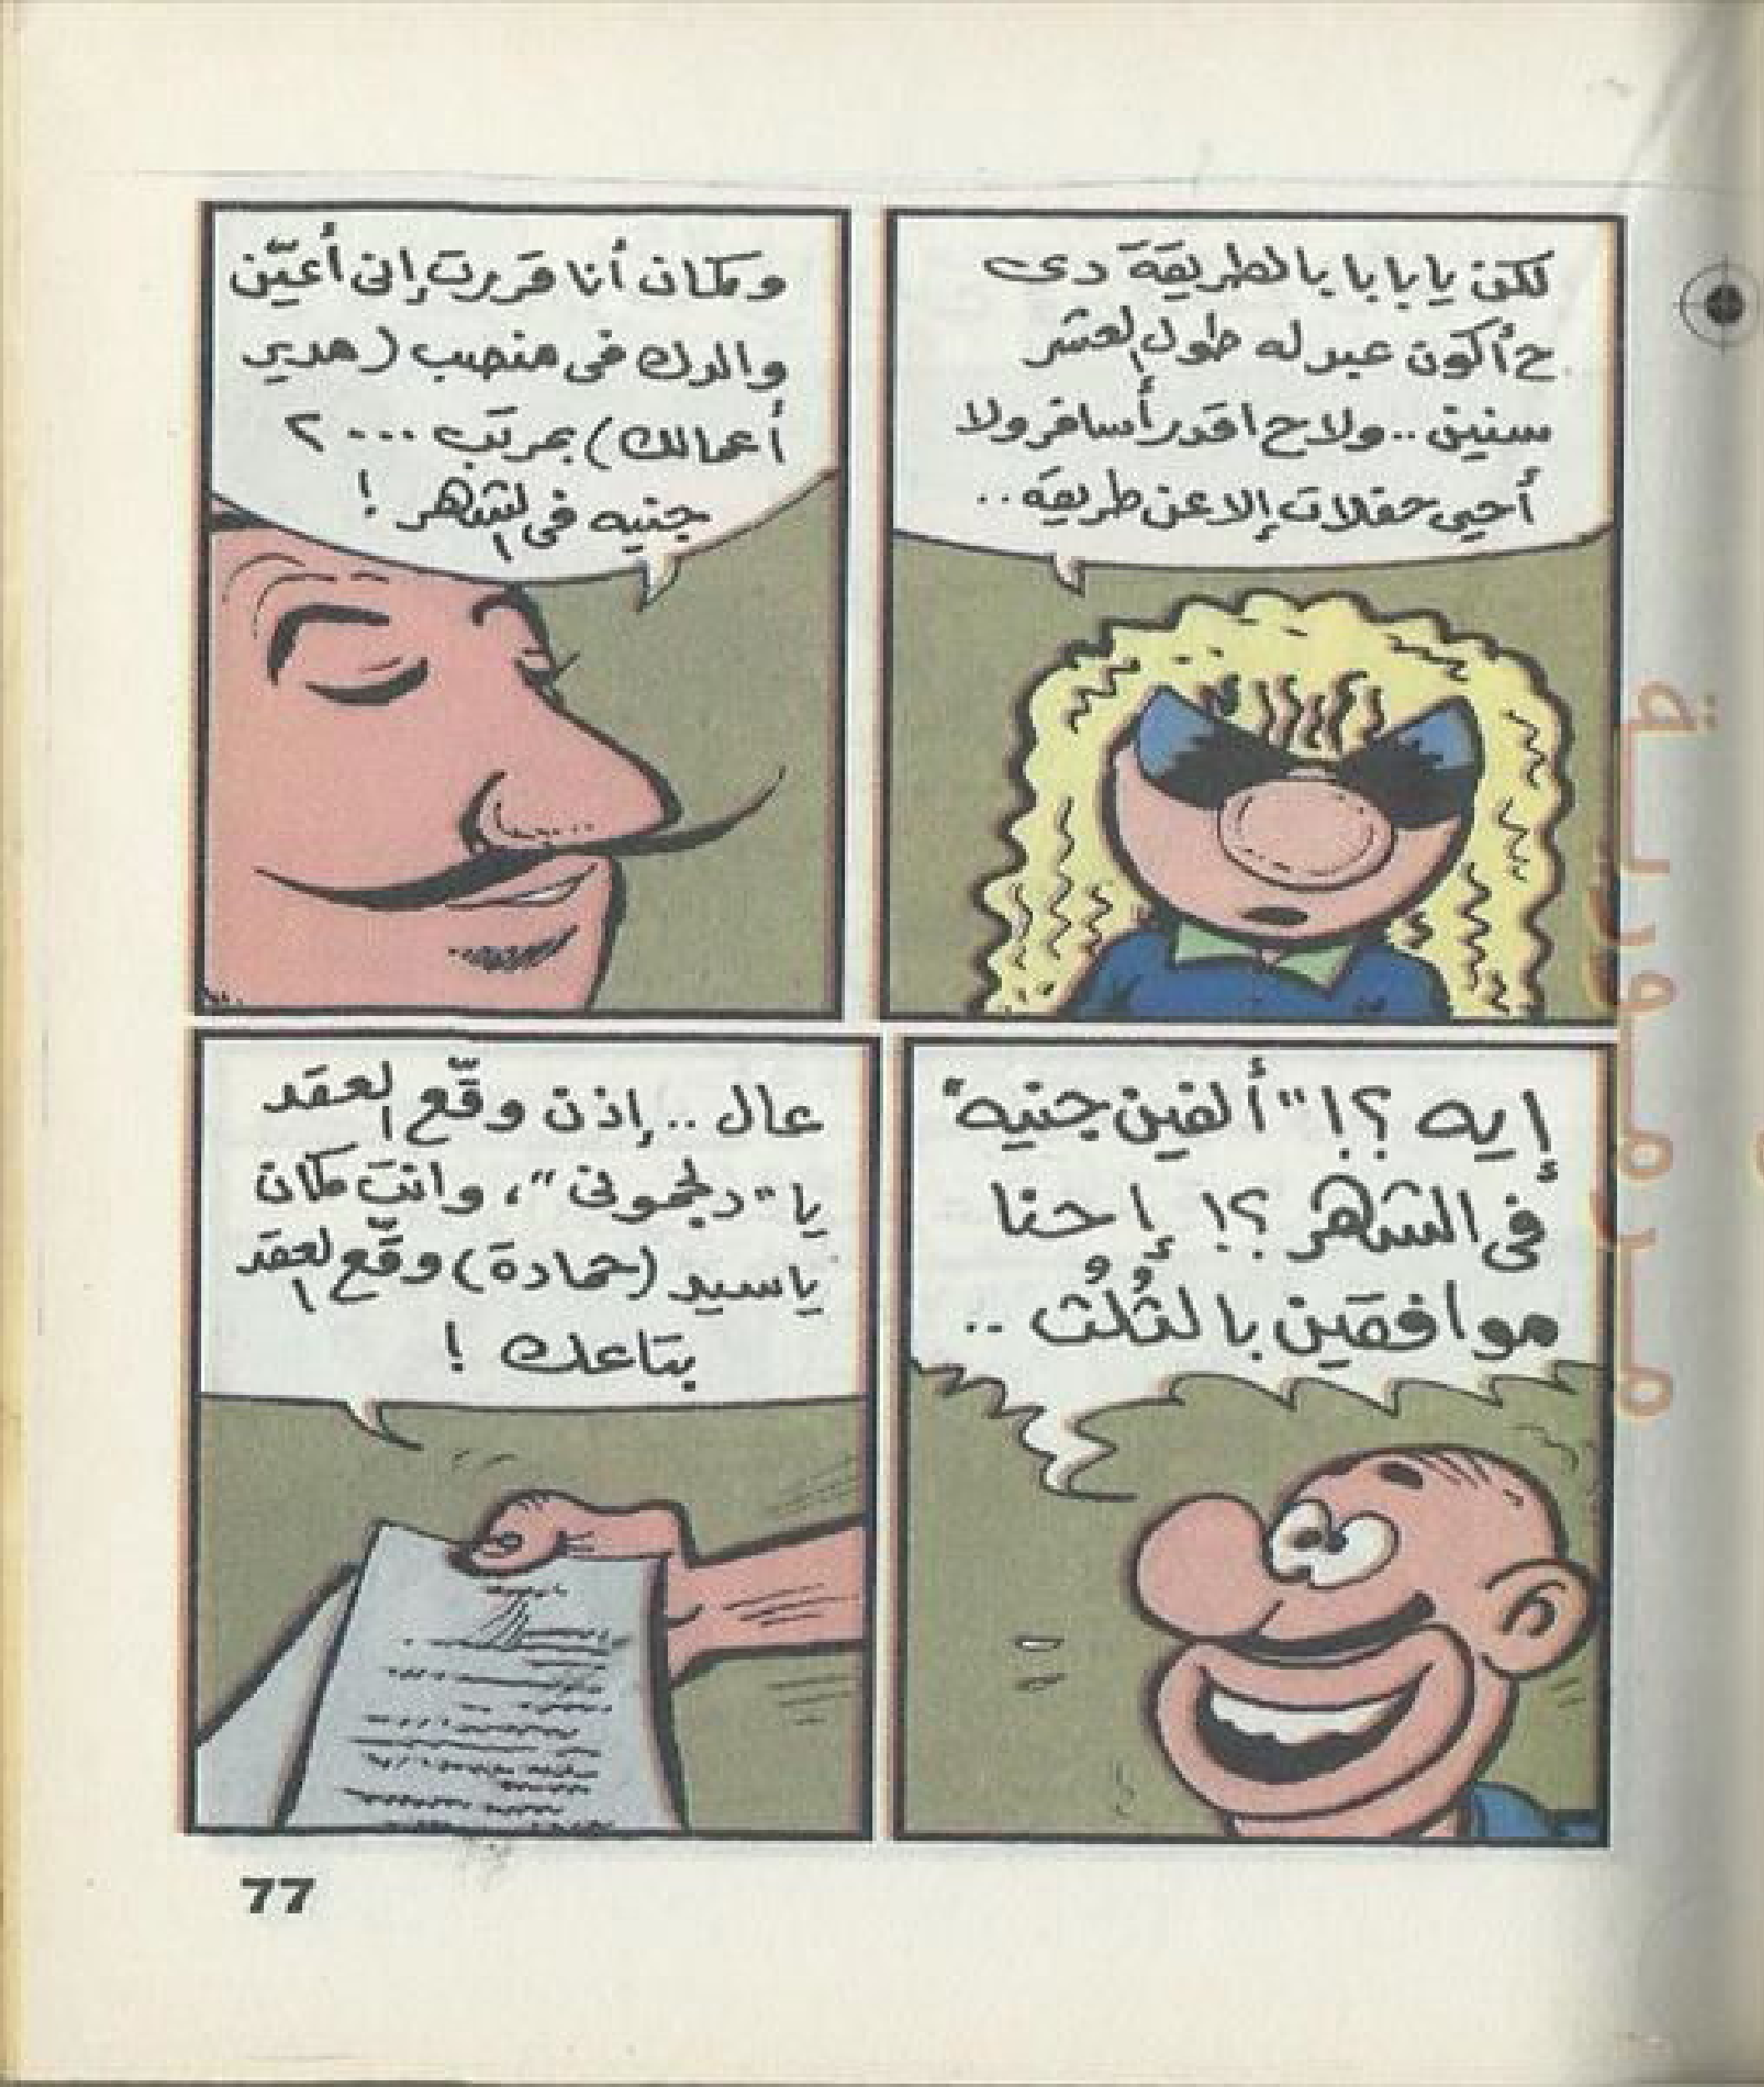 لكن يا بابا بالطريقة دى
ح أكون عبد له طول العشر
سنين .. ولا ح اقدر أسافر ولا
أحيى حفلات إلا عن طريقه ..
وكمان أنا قررت إنى أعيّن
والدك فى منصب (مدير
أعمالك) بمرتب ٢٠٠٠
جنيه فى الشهر !
إيه ؟! "ألفين جنيه"
فى الشهر ؟! إحنا
موافقين بالثُلُث ..
عال .. إذن وقّع العقد
يا "دلجمونى" ، وانت كمان
يا سيد (حمادة) وقّع العقد
بتاعك !
77